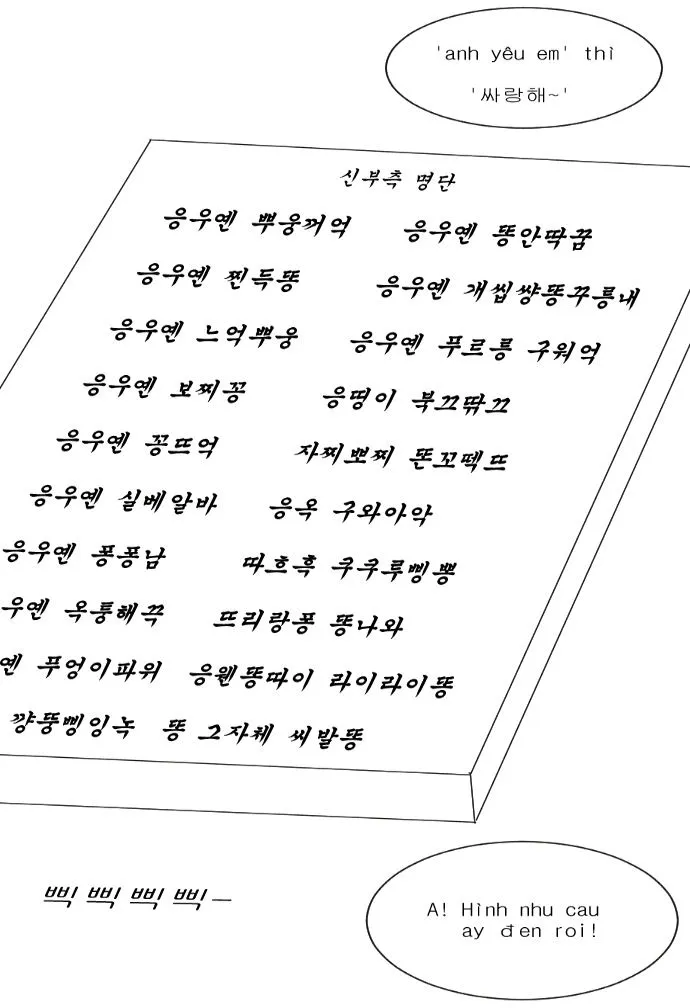 'anh yêu em' thì
'싸랑해~'
신부측 명단
응우옌 뿌웅꺼억 응우옌 똥안딱꿈
응우옌 찐득똥 응우옌 개씹썅똥꾸릉내
응우옌 느억뿌웅 응우옌 푸르릉 구워억
응우옌 보찌꽁 응띵이 북끄딲끄
응우옌 꽁뜨억 자찌뽀찌 똔꼬떽뜨
응우옌 실베알바 응옥 구와아악
응우옌 퐁퐁남 따흐흑 쿠쿠루삥뽕
우옌 옥퉁해끅 뜨리랑퐁 똥나와
옌 푸엉이파위 응웬똥따이 라이라이똥
꺙뚱삥잉녹 똥 그자체 씨발똥
삑 삑 삑 삑ㅡ
A! Hình nhu cau
ay đen roi!